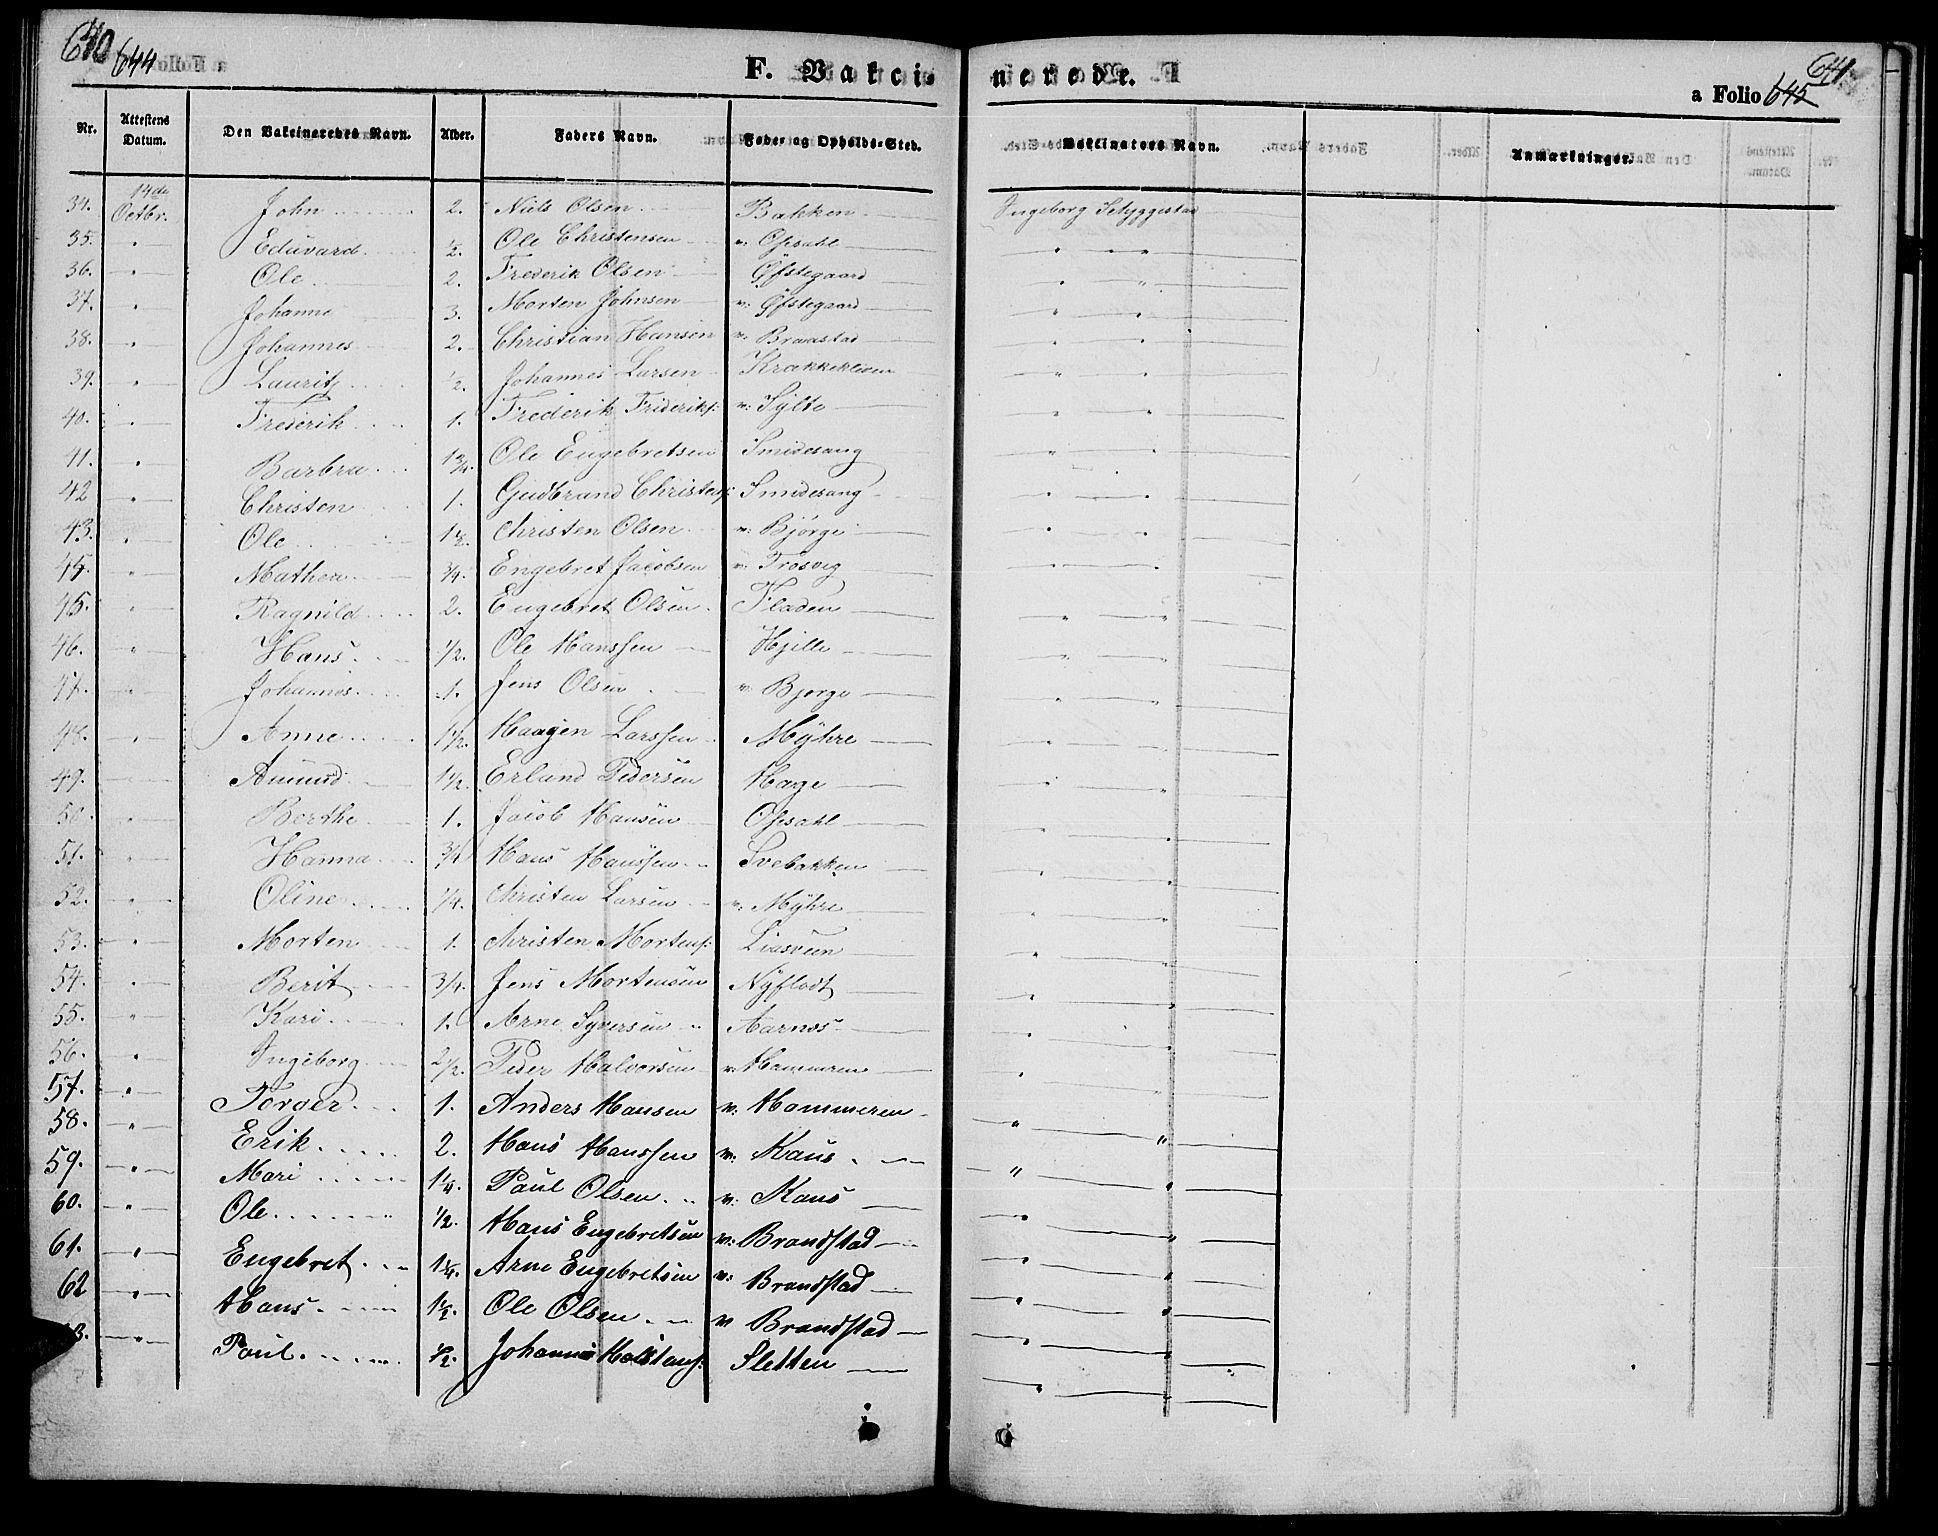 640 644
F. Vakci-
nerede.
a Folio 645
641
Nr. Attestens Datum. Den Vakcineredes Navn. Alder. Faders Navn. Føde- og Opholds-Sted. Vakcinators Navn. Anmærkninger.
34. 14de Octbr. John 2. Niels Olsen Bakken Ingeborg
35. " Eduvard ½. Ole Christensen v. Opsahl " "
36. " Ole 2. Frederik Olsen Øfstegaard " "
37. " Johanne 3. Morten Johnsen v. Øfstegaard " "
38. " Johannes 2. Christian Hansen v. Braastad " "
39. " Lauritz ½. Johannes Larsen Krakkekleven " "
40. " Frederik 1. Frederik Frideriks: v. Sylte " "
41. " Barbra 1¾. Ole Engebretsen Smidesang " "
42 " Christen 1. Gudbrand Christens: Smidesang " "
43. " Ole 1½. Christen Olsen v. Bjørge " "
44. " Mathea ¾. Engebret Jacobsen v. Trosvig " "
45. " Ragnild 2. Engebret Olsen Fladen " "
46. " Hans ½. Ole Hanssen Hjille " "
47. " Johannes 1. Jens Olsen v. Bjørge " "
48. " Anne 1½. Haagen Larssen Myhre " "
49. " Amund 1½. Erland Pedersen Hage " "
50. " Berthe 1. Jacob Hansen Opsahl " "
51. " Hanna ¾ Hans Hanssen Svebakken " "
52. " Oline ¼. Christen Larsen v. Myhre " "
53. " Morten 1. Christen Mortens: Liasveen " "
54. " Berit ¾. Jens Mortensen Nyflodt " "
55. " Kari 1. Arne Syversen Aarnes " "
56. " Ingeborg 2½. Peder Halvorsen v. Hammeren " "
57. " Torger 1. Anders Hansen v. Hammeren " "
58. " Erik 2. Hans Hanssen v. Kaus " "
59. " Mari 1¼. Paul Olsen v. Kaus " "
60. " Ole ½. Hans Engebretsen v. Brandstad " "
61. " Engebret 1¼. Arne Engebretsen v. Brandstad " "
62 " Hans 1½. Ole Olsen v Brandstad " "
3. " Paul ½. Johannes Sletten " "